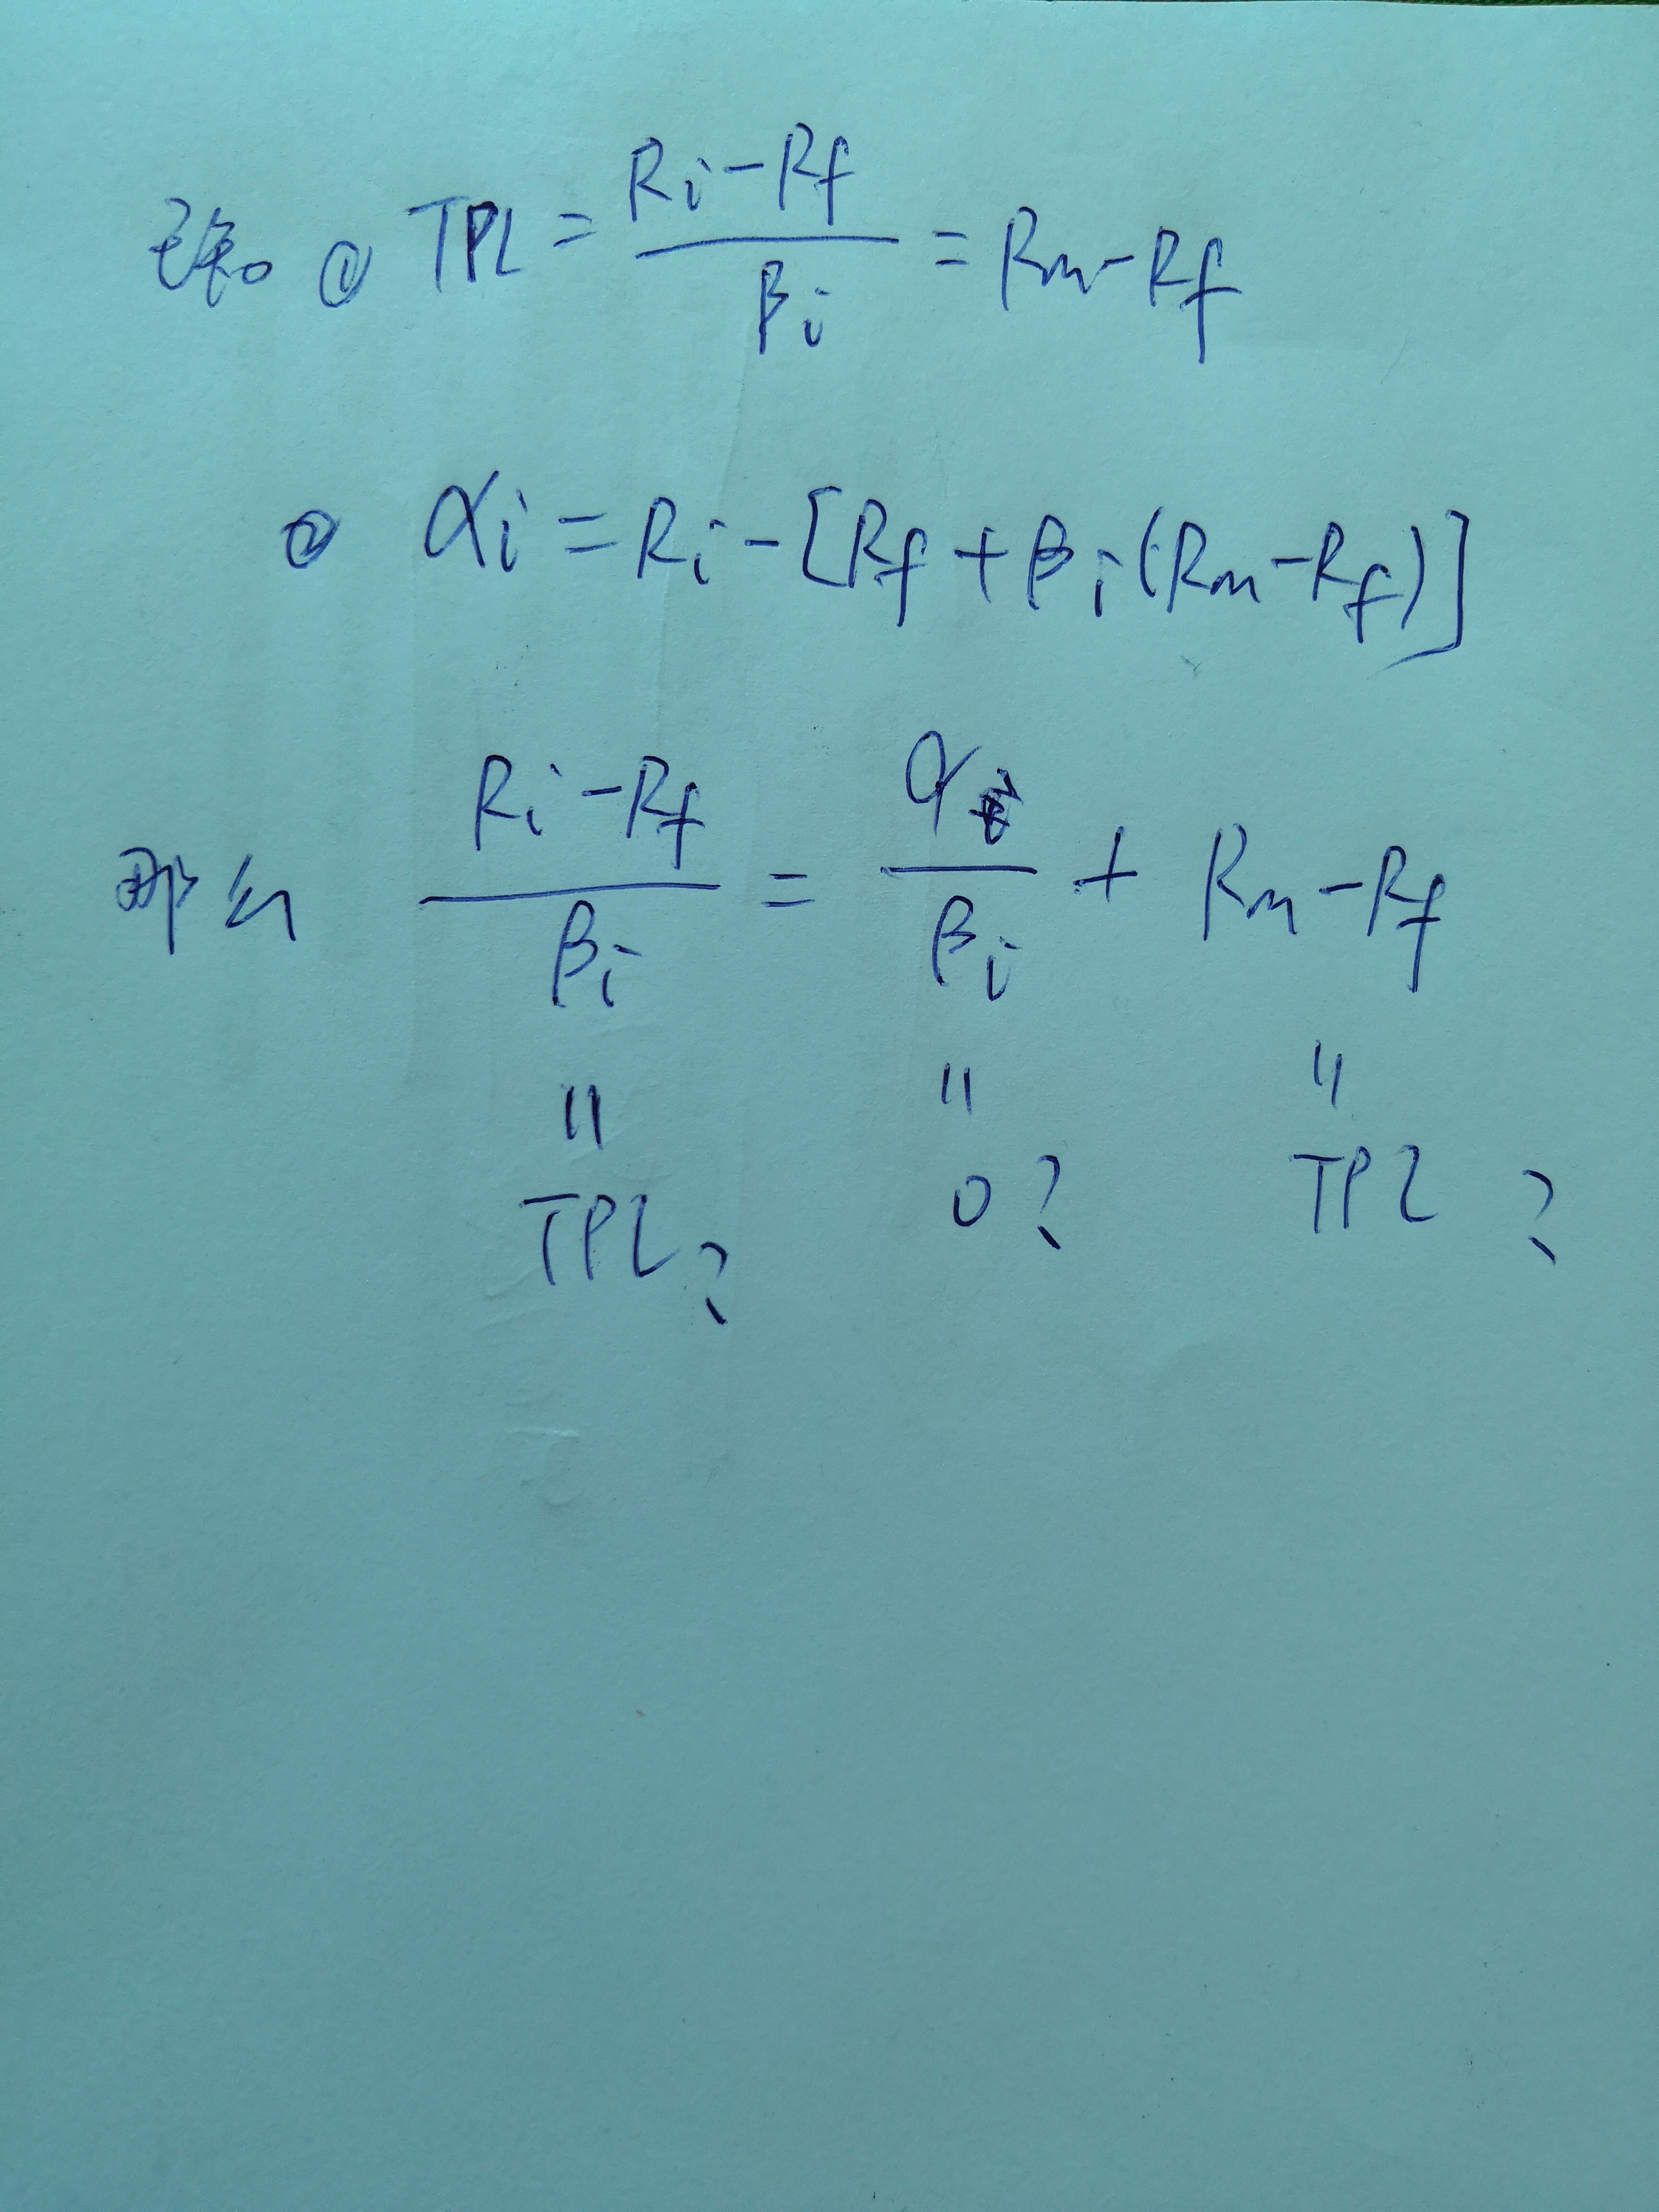 已知 ① TPL = (Ri - Rf) / βi = Rm - Rf
② αi = Ri - [Rf + βi (Rm - Rf)]
那么 (Ri - Rf) / βi = αi / βi + Rm - Rf
= = =
TPL? 0? TPL?